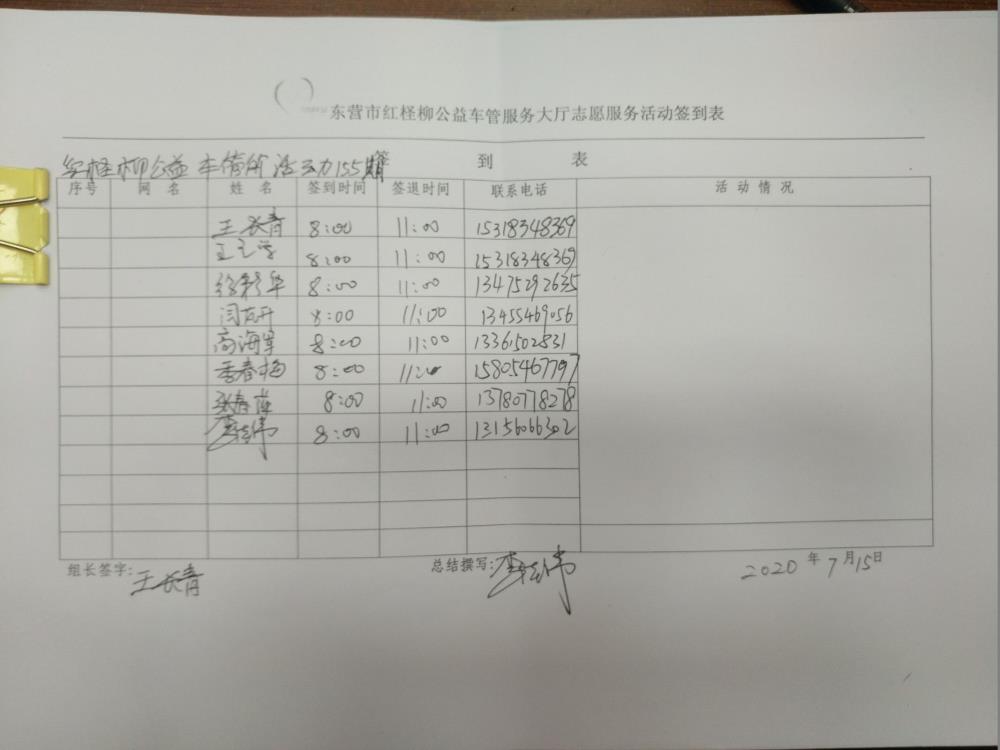 东营市红柽柳公益车管服务大厅志愿服务活动签到表
签 到 表
红柽柳公益 车管所 活动155期
序号 网 名 姓 名 签到时间 签退时间 联系电话 活 动 情 况
王长青 8:00 11:00 15318348369
8:00 11:00 15318348369
徐彩华 8:00 11:00 13475292635
闫 8:00 11:00 13455469056
高海军 8:00 11:00 13361502831
季春梅 8:00 11:00 15805467797
张春萍 8:00 11:00 13780778278
8:00 11:00 13156066302
组长签字: 王长青 总结撰写: 2020 年 7 月 15 日